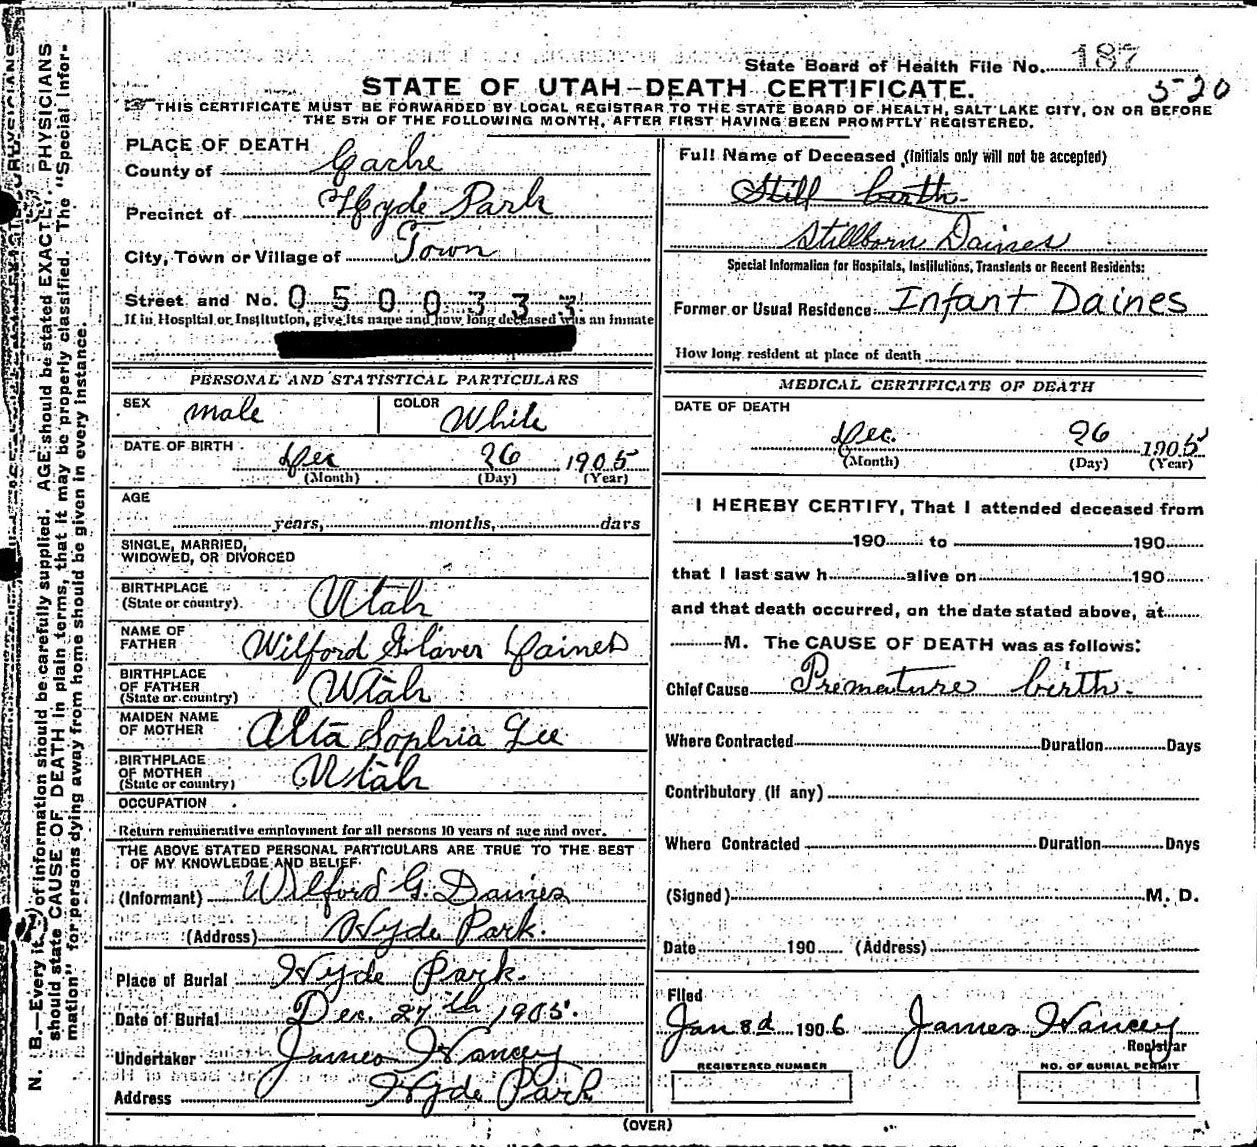 State Board of Health File No. 187
STATE OF UTAH–DEATH CERTIFICATE. 5-20
THIS CERTIFICATE MUST BE FORWARDED BY LOCAL REGISTRAR TO THE STATE BOARD OF HEALTH, SALT LAKE CITY, ON OR BEFORE
THE 5TH OF THE FOLLOWING MONTH, AFTER FIRST HAVING BEEN PROMPTLY REGISTERED.
PLACE OF DEATH
County of Cache
Precinct of Hyde Park
City, Town or Village of Town
Street and No. 0500333
If in Hospital or Institution, give its name and how long deceased was an inmate
PERSONAL AND STATISTICAL PARTICULARS
SEX male COLOR White
DATE OF BIRTH Dec 26 1905
(Month) (Day) (Year)
AGE
years, months, days
SINGLE, MARRIED,
WIDOWED, OR DIVORCED
BIRTHPLACE
(State or country) Utah
NAME OF
FATHER Wilford Glover Daines
BIRTHPLACE
OF FATHER
(State or country) Utah
MAIDEN NAME
OF MOTHER Alta Sophia Lee
BIRTHPLACE
OF MOTHER
(State or country) Utah
OCCUPATION
Return remunerative employment for all persons 10 years of age and over.
THE ABOVE STATED PERSONAL PARTICULARS ARE TRUE TO THE BEST
OF MY KNOWLEDGE AND BELIEF
(Informant) Wilford G. Daines
(Address) Hyde Park.
Place of Burial Hyde Park.
Date of Burial Dec. 27th 1905.
Undertaker James Hancey
Address Hyde Park
Full Name of Deceased (Initials only will not be accepted)
Still birth
Stillborn Daines
Special Information for Hospitals, Institutions, Transients or Recent Residents:
Former or Usual Residence Infant Daines
How long resident at place of death
MEDICAL CERTIFICATE OF DEATH
DATE OF DEATH
Dec. 26 1905
(Month) (Day) (Year)
I HEREBY CERTIFY, That I attended deceased from
190 to 190
that I last saw h alive on 190
and that death occurred, on the date stated above, at
M. The CAUSE OF DEATH was as follows:
Chief Cause Premature birth.
Where Contracted Duration Days
Contributory (if any)
Where Contracted Duration Days
(Signed) M. D.
Date 190 (Address)
Filed
Jan 8d 1906 James Hancey
Registrar
REGISTERED NUMBER NO. OF BURIAL PERMIT
(OVER)
N. B.—Every item of information should be carefully supplied. AGE should be stated EXACTLY. PHYSICIANS
should state CAUSE OF DEATH in plain terms, that it may be properly classified. The "Special Infor-
mation" for persons dying away from home should be given in every instance.